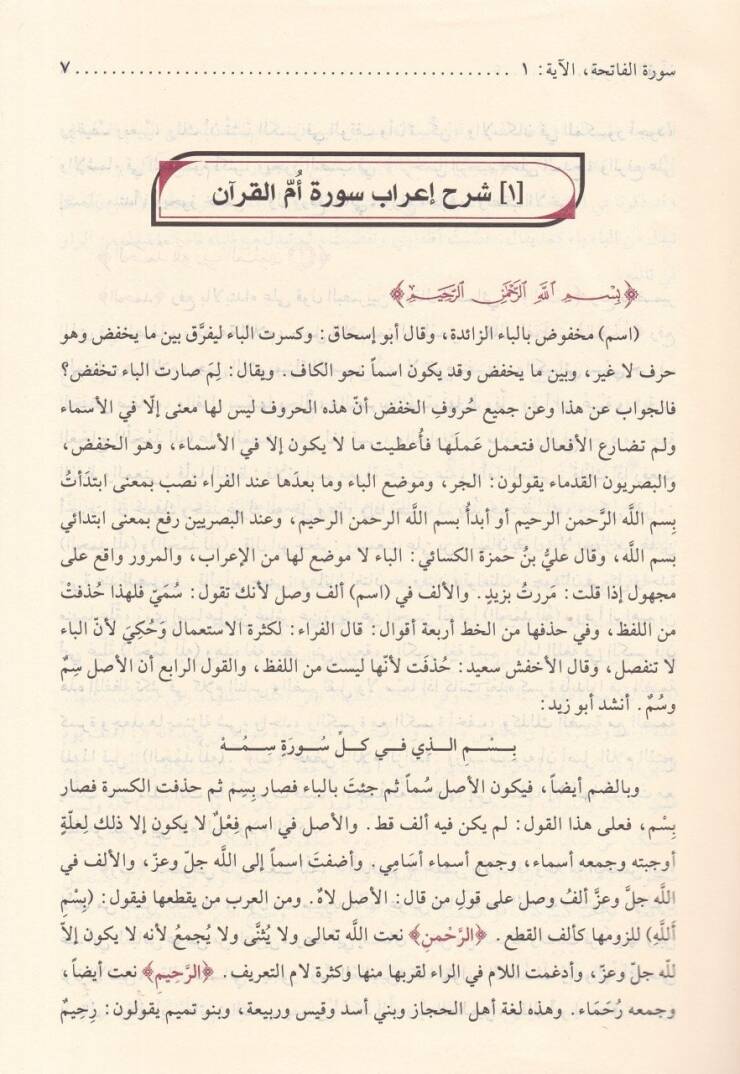 سورة الفاتحة، الآية: ١ .................................................. ٧
[١] شرح إعراب سورة أُمّ القرآن
﴿بِسْمِ ٱللَّهِ ٱلرَّحْمَٰنِ ٱلرَّحِيمِ﴾
(اسم) مخفوض بالباء الزائدة، وقال أبو إسحاق: وكسرت الباء ليفرَّق بين ما يخفض وهو
حرف لا غير، وبين ما يخفض وقد يكون اسماً نحو الكاف. ويقال: لِمَ صارت الباء تخفض؟
فالجواب عن هذا وعن جميع حُروفِ الخفض أنّ هذه الحروف ليس لها معنى إلّا في الأسماء
ولم تضارع الأفعال فتعمل عَملَها فأُعطيت ما لا يكون إلا في الأسماء، وهو الخفض،
والبصريون القدماء يقولون: الجر، وموضع الباء وما بعدَها عند الفراء نصب بمعنى ابتدَأتُ
بِسم اللَّه الرَّحمن الرحيم أو أبدأُ بسم اللَّه الرحمن الرحيم، وعند البصريين رفع بمعنى ابتدائي
بسم اللَّه، وقال عليُّ بنُ حمزة الكسائي: الباء لا موضع لها من الإعراب، والمرور واقع على
مجهول إذا قلت: مَررتُ بزيدٍ. والألف في (اسم) ألف وصل لأنك تقول: سُمَيّ فلهذا حُذفتْ
من اللفظ، وفي حذفها من الخط أربعة أقوال: قال الفراء: لكثرة الاستعمال وَحُكِيَ لأنّ الباء
لا تنفصل، وقال الأخفش سعيد: حُذفَت لأنّها ليست من اللفظ، والقول الرابع أن الأصل سِمٌ
وسُمٌ. أنشد أبو زيد:
بِــسْــمِ الــذِي فــي كــلِّ سُــورَةٍ سِــمُــهْ
وبالضم أيضاً، فيكون الأصل سُماً ثم جئتَ بالباء فصار بِسِم ثم حذفت الكسرة فصار
بِسْم، فعلى هذا القول: لم يكن فيه ألف قط. والأصل في اسم فِعْلٌ لا يكون إلا ذلك لِعلّةٍ
أوجبته وجمعه أسماء، وجمع أسماء أسَامِي. وأضفتَ اسماً إلى اللَّه جلّ وعزّ، والألف في
اللَّه جلَّ وعزَّ ألفُ وصل على قولِ من قال: الأصل لاهٌ. ومن العرب من يقطعها فيقول: (بِسْمِ
أَللَّهِ) للزومها كألف القطع. ﴿الرَّحْمنِ﴾ نعت اللَّه تعالى ولا يُثنَّى ولا يُجمعُ لأنه لا يكون إلاّ
للّه جلّ وعزّ، وأدغمت اللام في الراء لقربها منها وكثرة لام التعريف. ﴿الرَّحِيمِ﴾ نعت أيضاً،
وجمعه رُحَمَاء. وهذه لغة أهل الحجاز وبني أسد وقيس وربيعة، وبنو تميم يقولون: رِحِيمٌ